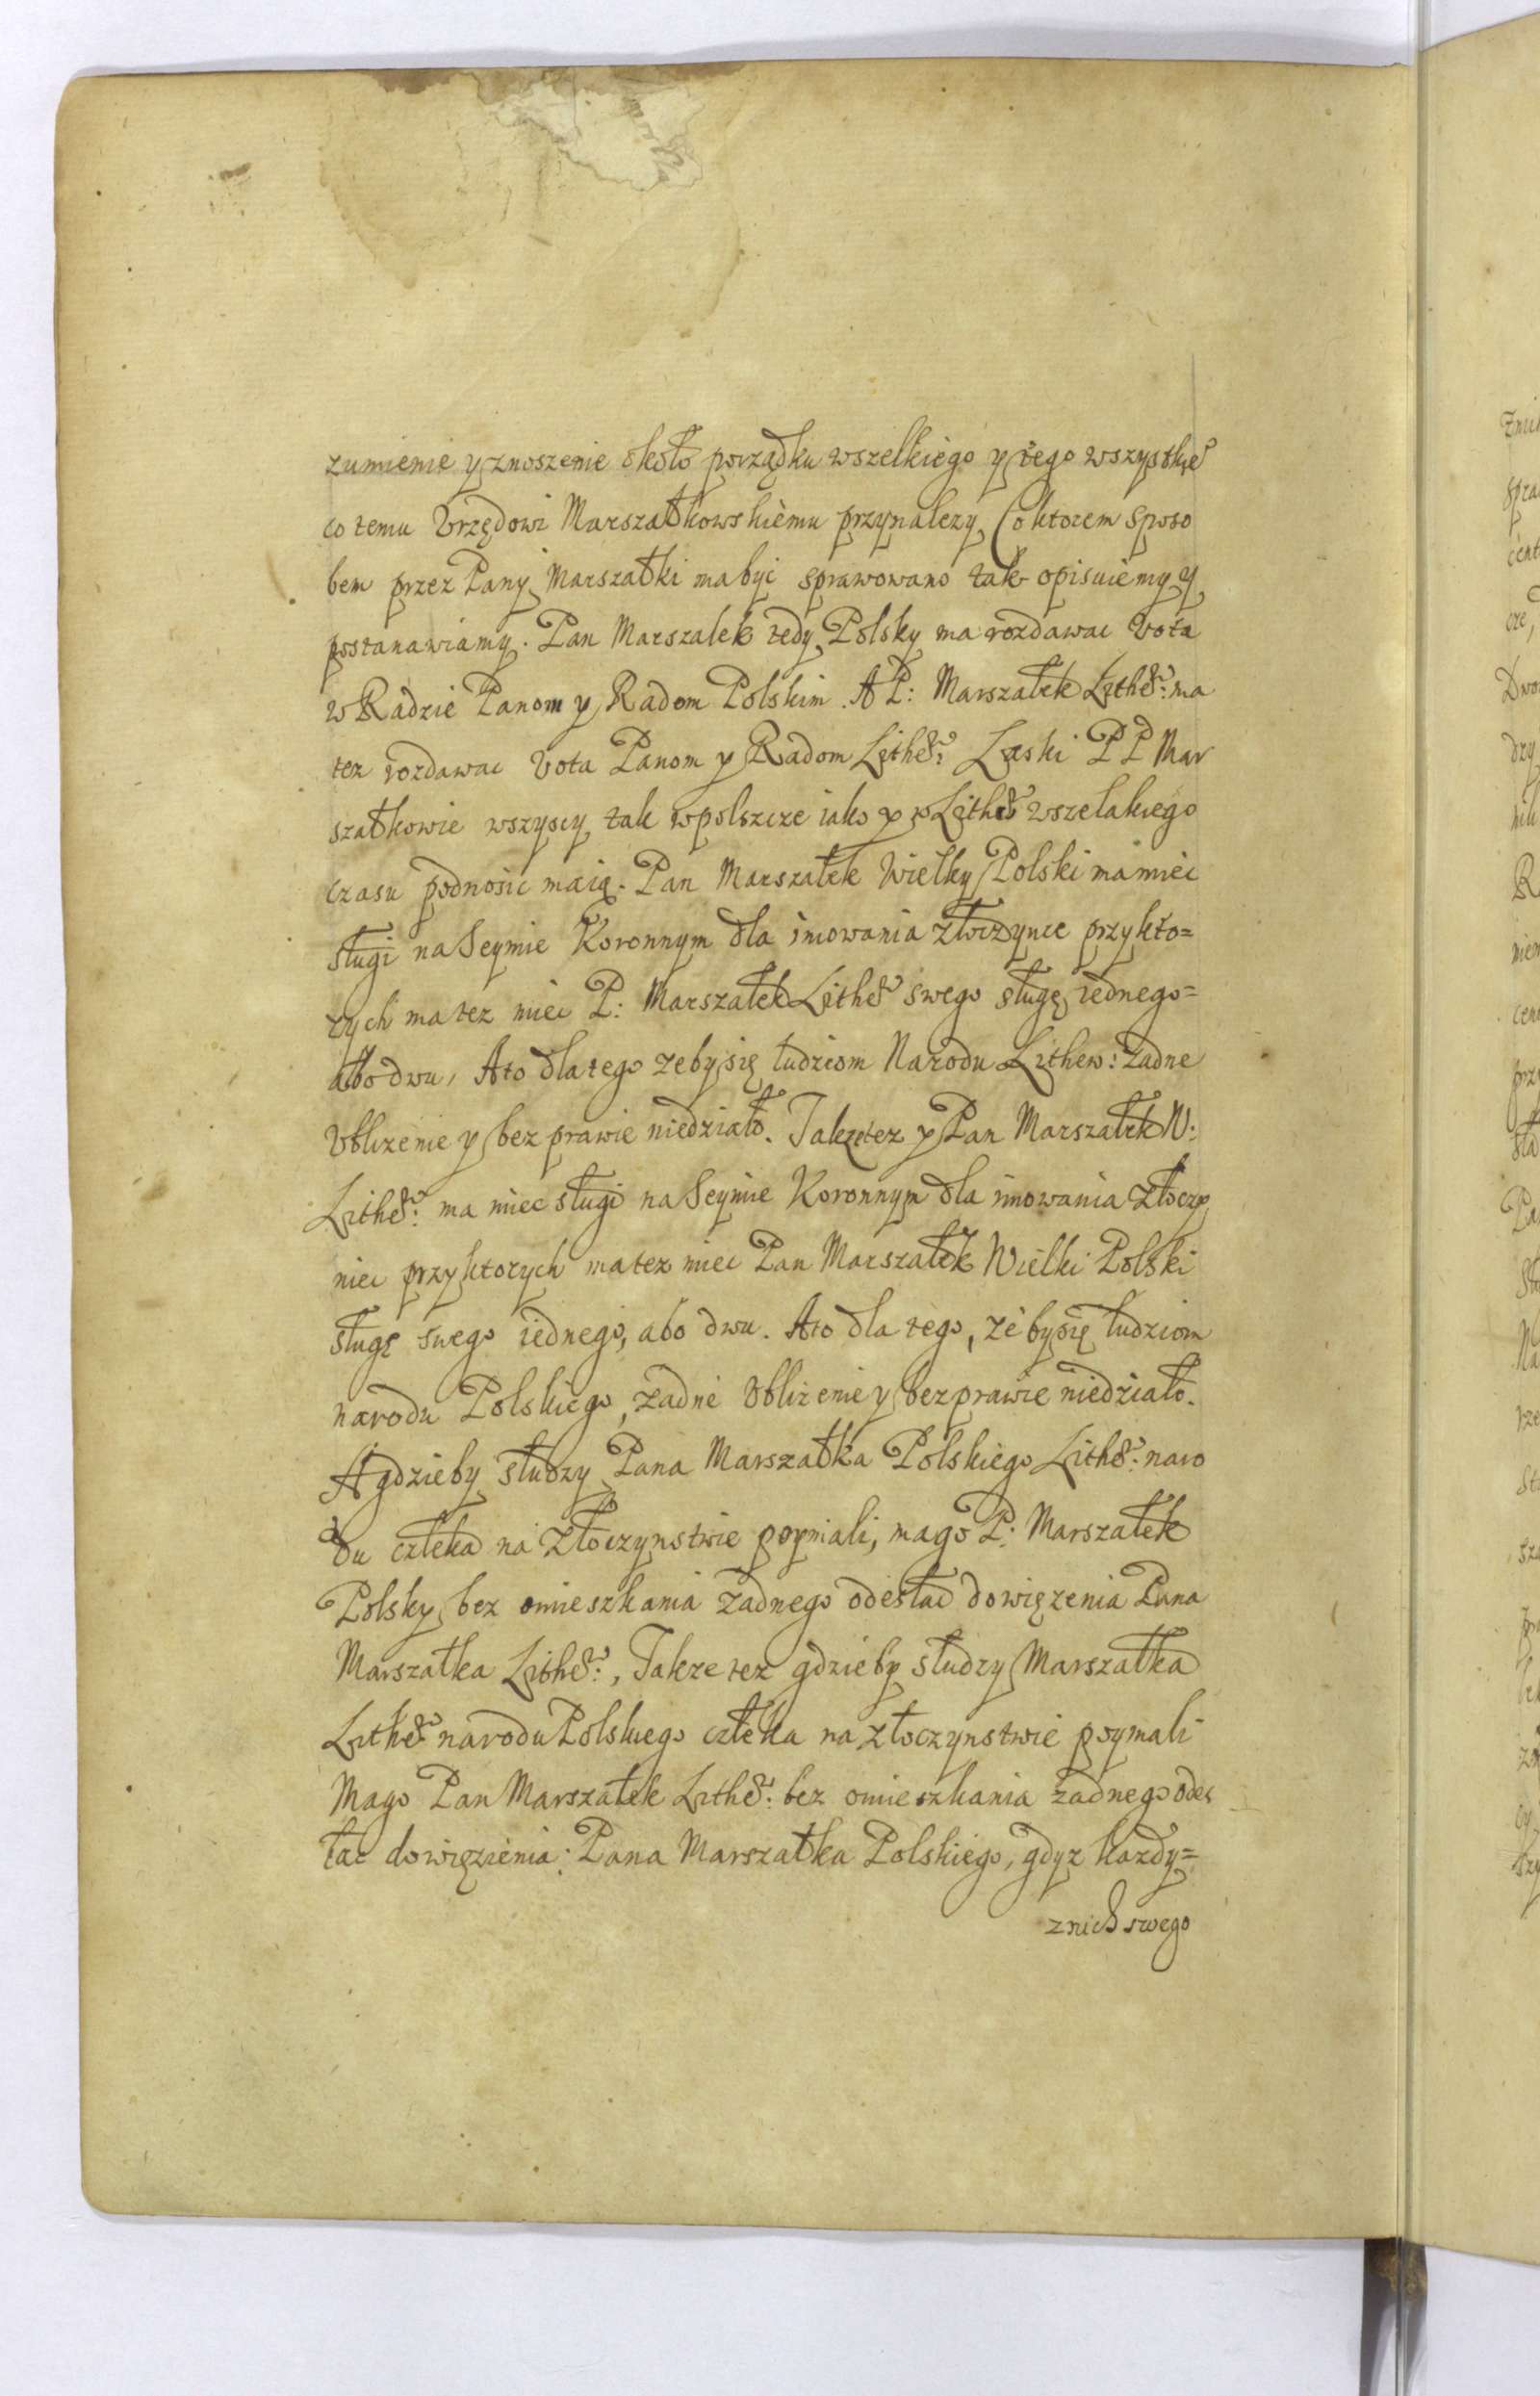 zumienie y znoszenie około porządku wszelkiego y tego wszystkie
co temu Vrzędowi Marszałkowskiemu przynalezy, Co ktorem sposo
bem przez Pany Marszałki ma być sprawowano tak opisuiemy y
postanawiamy. Pan Marszalek tedy Polsky ma rozdawac Vota
w Radzie Panom y Radom Polskim. A P: Marszałek Lithew: ma
tez rozdawac Vota Panom y Radom Lithew: Laski P P Mar
szałkowie wszyscy tak w polszcze iako y w Lithew wszelakiego
czasu podnosic maią. Pan Marszałek Wielky Polski ma miec
sługi na Seymie Koronnym dla imowania złoczynce przy kto=
rych ma tez miec P: Marszałek Lithew swego sługę iednego=
albo dwu, A to dla tego zeby się ludziom Narodu Lithew: Zadne
Vblizenie y bez prawie niedziało. Takze tez y Pan Marszałek W:
Lithew: ma miec sługi na Seymie Koronnym dla imowania Złoczy
niec przy ktorych ma tez miec Pan Marszałek Wielki Polski
sługę swego iednego, abo dwu. A to dla tego, że by się ludziom
narodu Polskiego, zadne Vbliżenie y bezprawie niedziało.
A gdzieby słudzy Pana Marszałka Polskiego Lithew: naro
du człeka na Złoczynstwie poymali, ma go P: Marszałek
Polsky bez omieszkania zadnego odesłac do więzenia Pana
Marszałka Lithew:, Takze tez gdzieby słudzy Marszałka
Lithew narodu Polskiego człeka na złoczynstwie poymali
Ma go Pan Marszałek Lithew: bez omieszkania żadnego odes
łac do więzienia: Pana Marszałka Polskiego, gdyz kazdy=
z nich swego